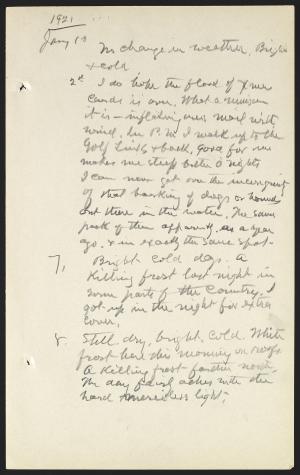 1921
Jany 1st
No change in weather, Bright
& cold.
2d I do hope the flood of Xmas
cards is over. What a nuisance
it is — inflating ones mail with
wind. In P.M. I walk up to the
Golf Links & back, good for me
makes me sleep better o'nights
I can never get over the incongruity
of that barking of dogs or hounds
out there in the water. The same
pack of them apparently as a year
ago, & in exactly the same spot.
7, Bright cold days. A
Killing frost last night in
some parts of the Country, I
got up in the night for extra
cover.
8. Still dry, bright, cold. White
frost here this morning on roofs.
A Killing frost farther north,
The day fairly aches with the
hard merciless light.